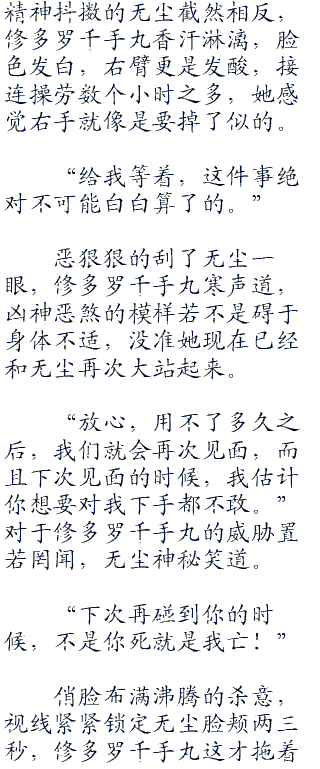 精神抖擞的无尘截然相反，
修多罗千手丸香汗淋漓，脸
色发白，右臂更是发酸，接
连操劳数个小时之多，她感
觉右手就像是要掉了似的。
“给我等着，这件事绝
对不可能白白算了的。”
恶狠狠的刮了无尘一
眼，修多罗千手丸寒声道，
凶神恶煞的模样若不是碍于
身体不适，没准她现在已经
和无尘再次大站起来。
“放心，用不了多久之
后，我们就会再次见面，而
且下次见面的时候，我估计
你想要对我下手都不敢。”
对于修多罗千手丸的威胁置
若罔闻，无尘神秘笑道。
“下次再碰到你的时
候，不是你死就是我亡！”
俏脸布满沸腾的杀意，
视线紧紧锁定无尘脸颊两三
秒，修多罗千手丸这才拖着